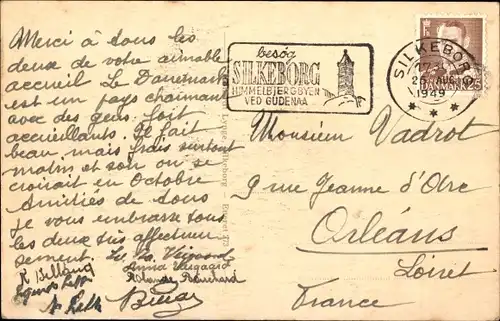 Merci à tous les
deux de votre aimable
accueil Le Danemark
est un pays charmant
avec des gens fort
accueillants. Il fait
beau mais frais surtout
matin et soir on se
croirait en Octobre
Amitiés de tous
je vous embrasse tous
les deux très affectueu
sement.
besøg
SILKEBORG
HIMMELBJERGBYEN
VED GUDENAA
SILKEBORG
1949
DANMARK 25
Monsieur Vadrot
9 rue Jeanne d'Arc
Orléans
Loiret
France